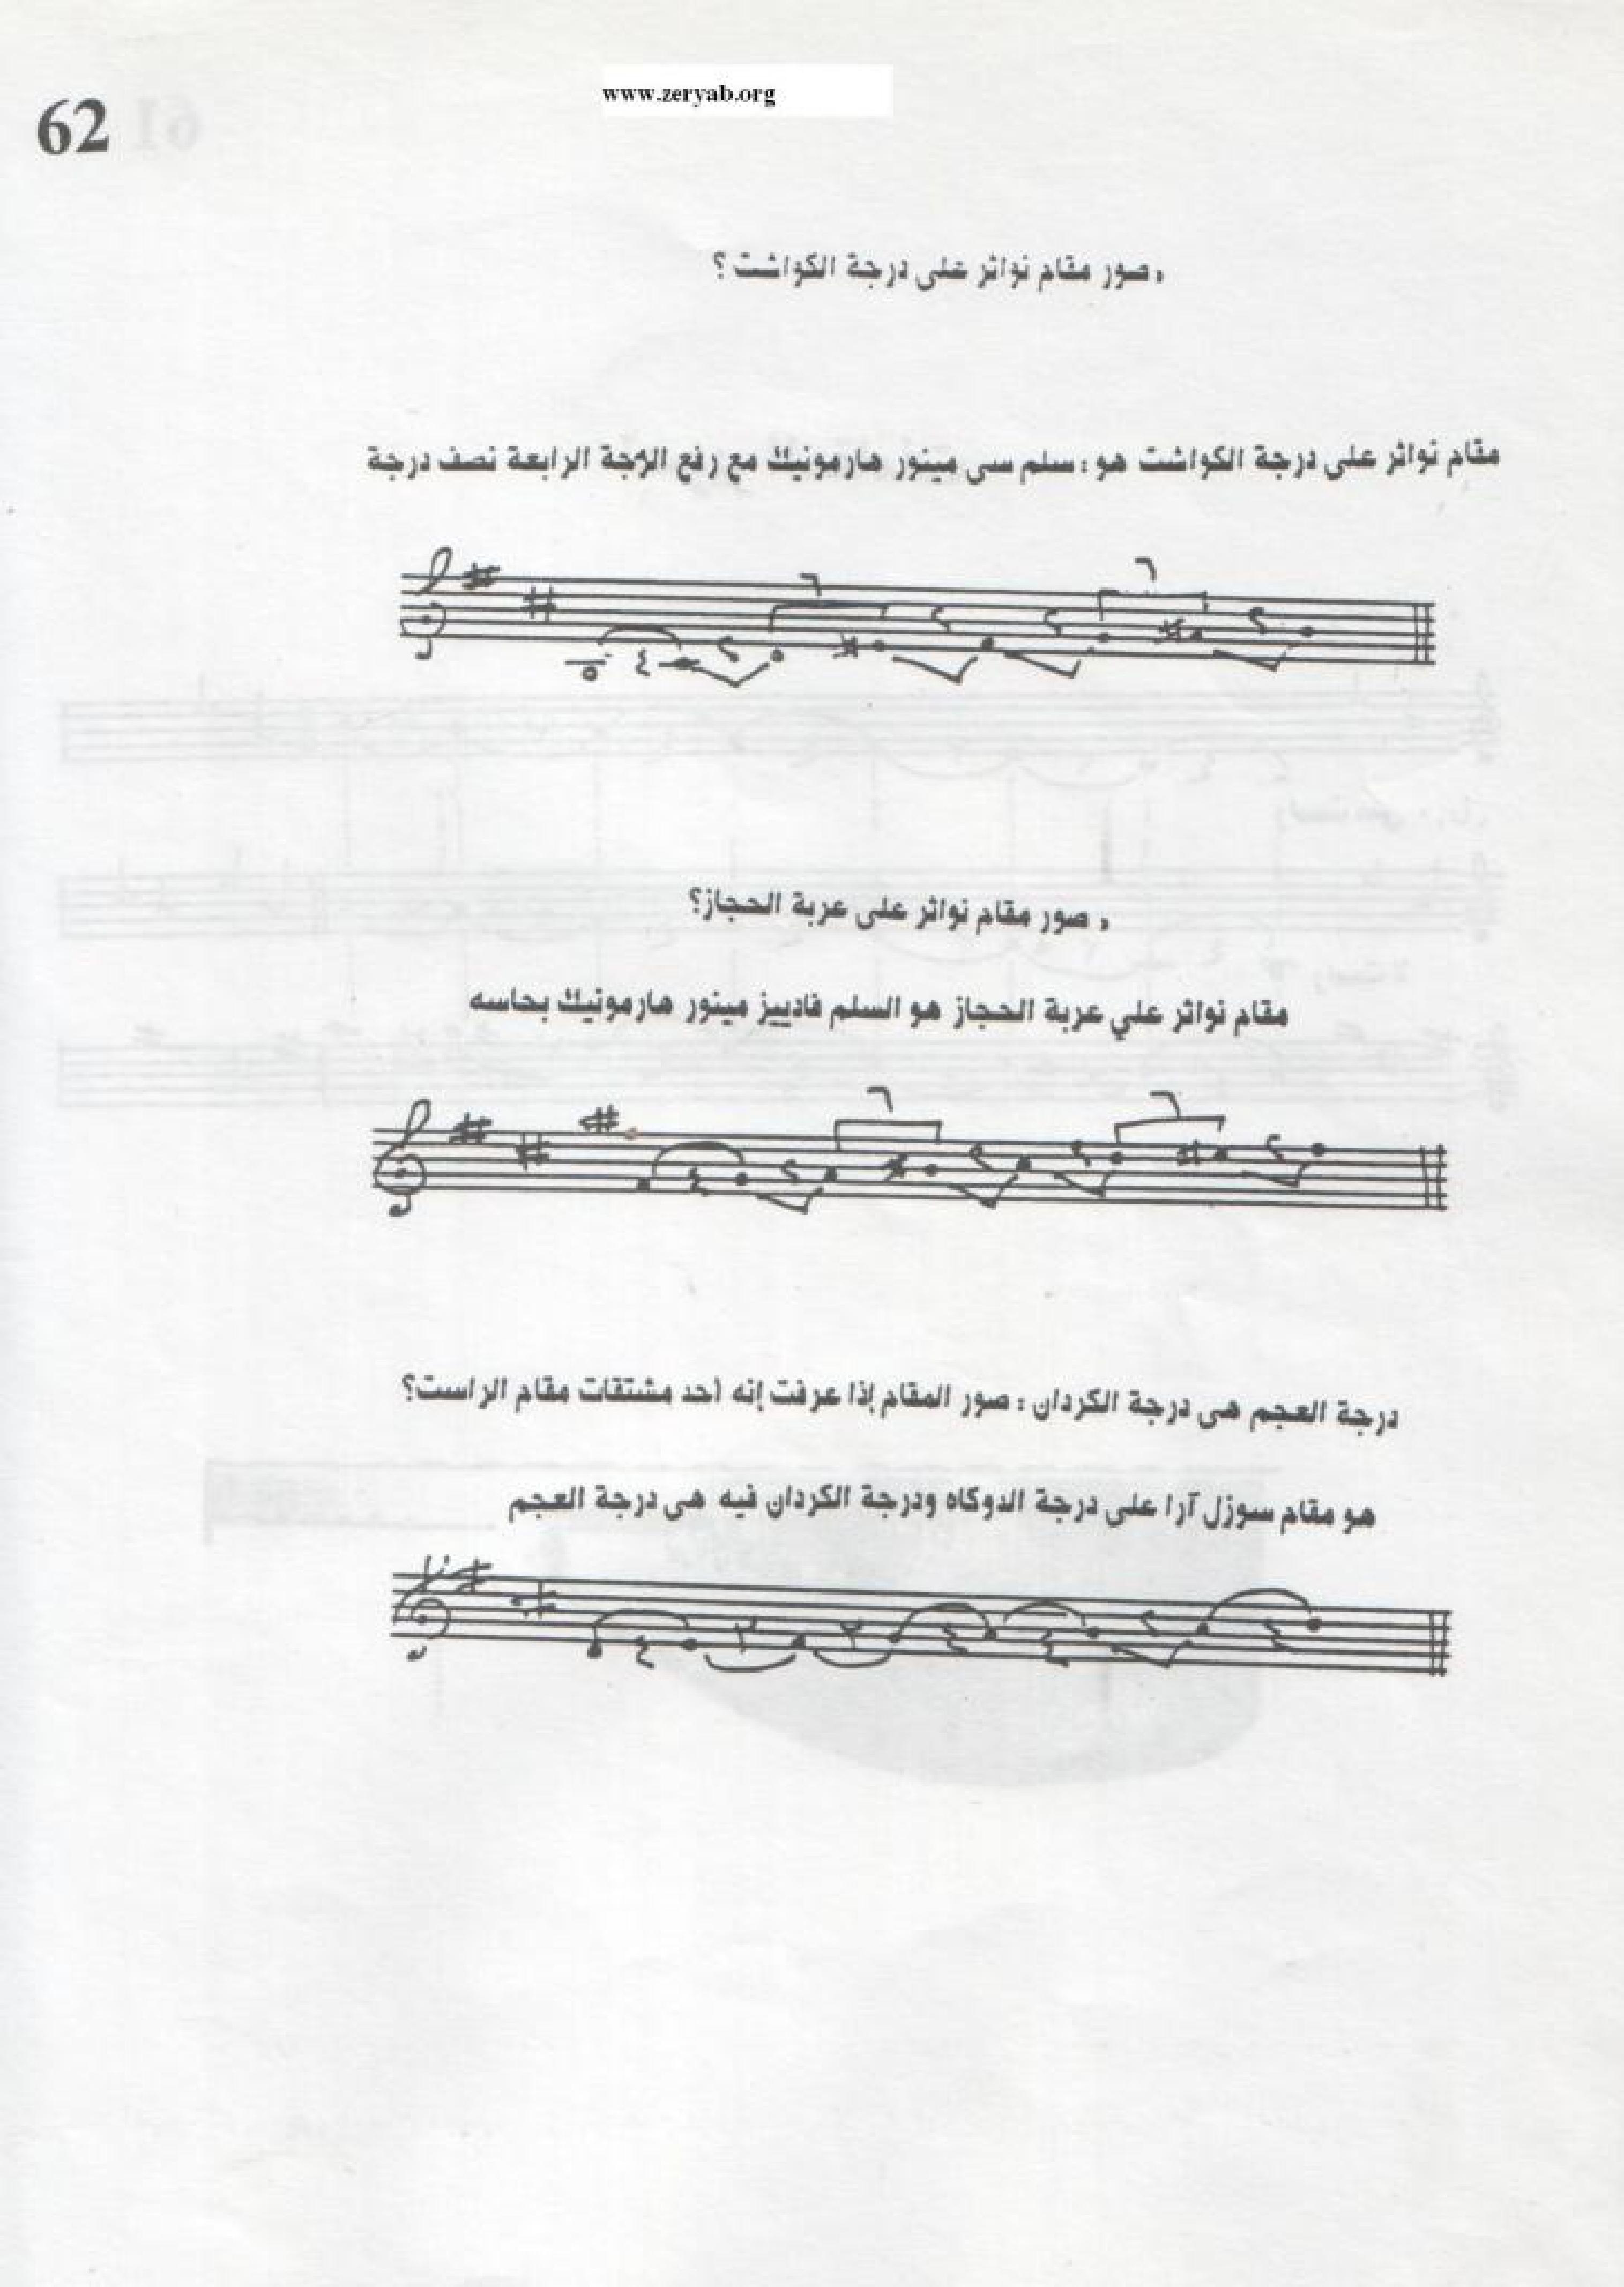 www.zeryab.org
62
• صور مقام نواثر على درجة الكواشت ؟
مقام نواثر على درجة الكواشت هو : سلم سى مينور هارمونيك مع رفع الرجة الرابعة نصف درجة
• صور مقام نواثر على عربة الحجاز؟
مقام نواثر علي عربة الحجاز هو السلم فادييز مينور هارمونيك بحاسه
درجة العجم هى درجة الكردان : صور المقام إذا عرفت إنه أحد مشتقات مقام الراست؟
هو مقام سوزل آرا على درجة الدوكاه ودرجة الكردان فيه هى درجة العجم